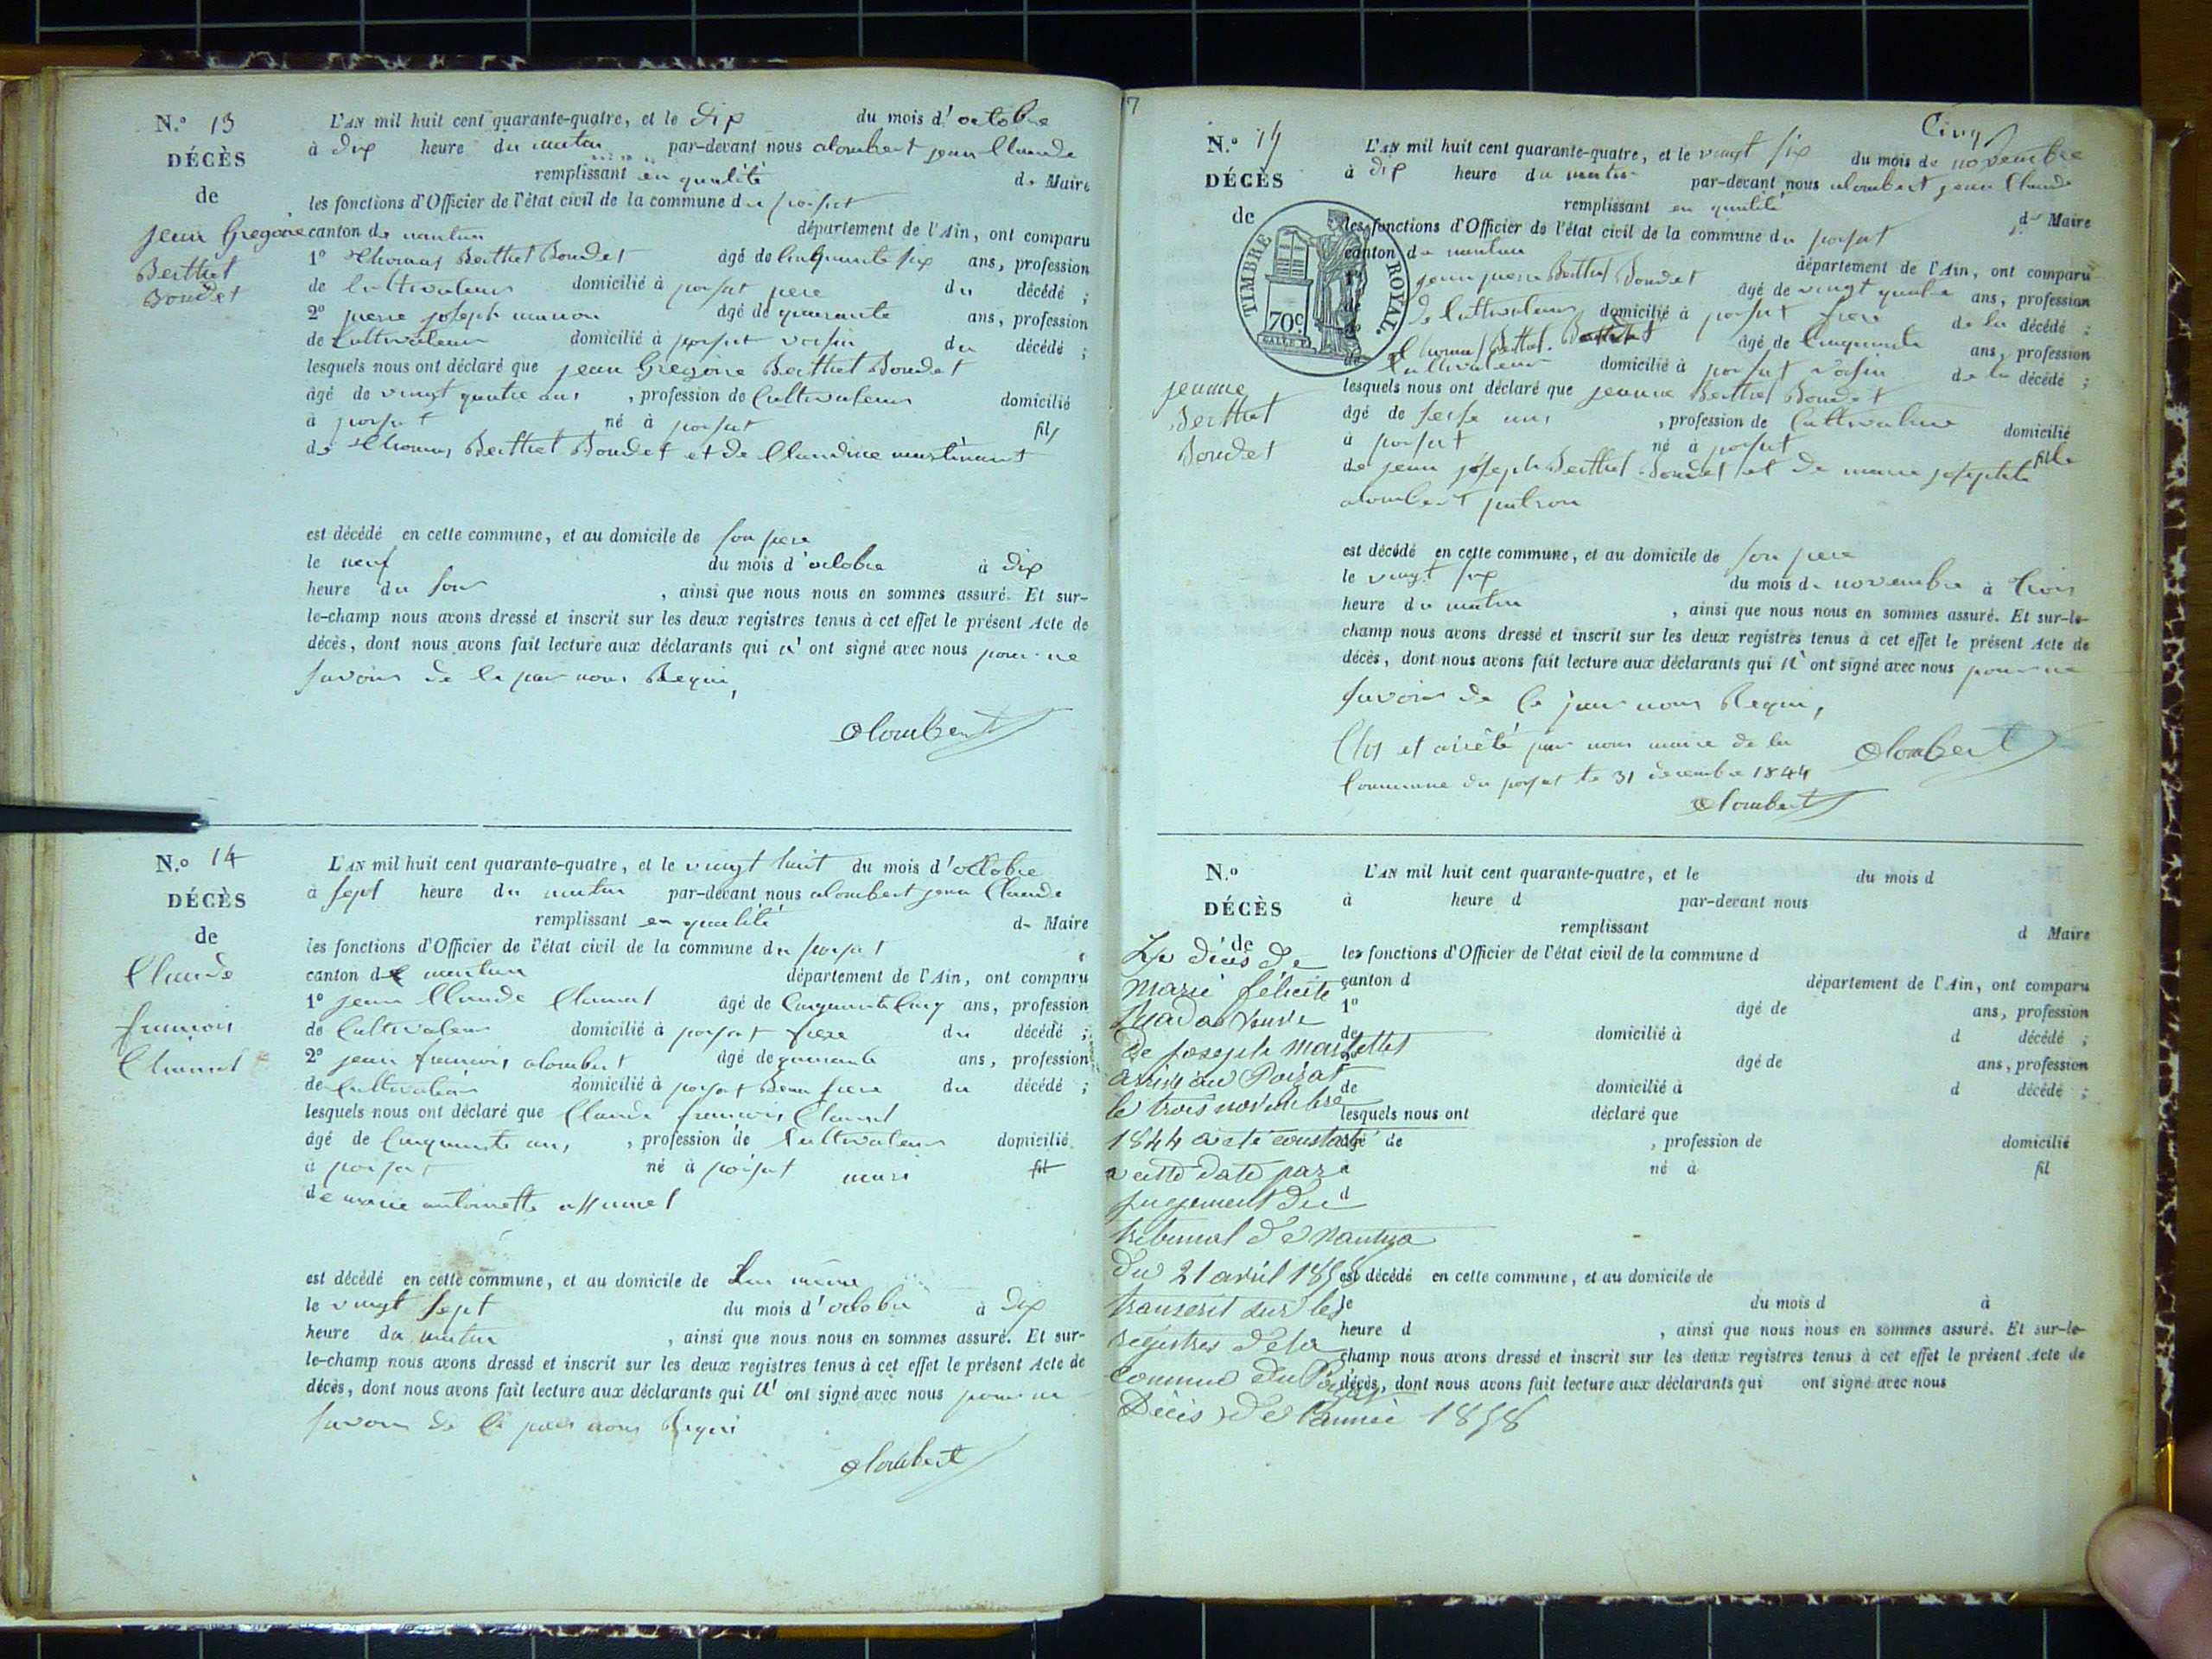 N.° 13
DÉCÈS
de
jean Gregoire
Berthet
Boudet
L'AN mil huit cent quarante-quatre, et le dix du mois d'octobre
à dix heure du matin par-devant nous alombert jean Claude
remplissant en qualité de Maire
les fonctions d'Officier de l'état civil de la commune du poisat
canton de nantua département de l'Ain, ont comparu
1° Thomas Berthet Boudet âgé de Cinquante six ans, profession
de Cultivateur domicilié à poisat pere du décédé ;
2° pierre joseph âgé de quarante ans, profession
de Cultivateur domicilié à poisat voisin du décédé ;
lesquels nous ont déclaré que jean Gregoire Berthet Boudet
âgé de vingt quatre ans , profession de Cultivateur domicilié
à poisat né à poisat fils
de Thomas Berthet Boudet et de Claudine
est décédé en cette commune, et au domicile de son pere
le neuf du mois d'octobre à dix
heure du soir , ainsi que nous nous en sommes assuré. Et sur-
le-champ nous avons dressé et inscrit sur les deux registres tenus à cet effet le présent Acte de
décès, dont nous avons fait lecture aux déclarants qui n'ont signé avec nous pour ne
savoir de ce par nous Requi,
alombert
N.° 14
DÉCÈS
de
Claude
francois
L'AN mil huit cent quarante-quatre, et le vingt huit du mois d'octobre
à sept heure du matin par-devant nous alombert jean Claude
remplissant en qualité de Maire
les fonctions d'Officier de l'état civil de la commune du poisat
canton de nantua département de l'Ain, ont comparu
1° jean Claude âgé de Cinquante Cinq ans, profession
de Cultivateur domicilié à poisat frere du décédé ;
2° jean francois alombert âgé de quarante ans, profession
de Cultivateur domicilié à poisat Beau frere du décédé ;
lesquels nous ont déclaré que Claude francois
âgé de Cinquante ans , profession de Cultivateur domicilié
à poisat né à poisat mari fil
de marie antoinette
est décédé en cette commune, et au domicile de Lui même
le vingt sept du mois d'octobre à Dix
heure du matin , ainsi que nous nous en sommes assuré. Et sur-
le-champ nous avons dressé et inscrit sur les deux registres tenus à cet effet le présent Acte de
décès, dont nous avons fait lecture aux déclarants qui n'ont signé avec nous pour ne
savoir de ce par nous Requi
alombert
7
Cinq
N.° 14
DÉCÈS
de
TIMBRE ROYAL.
70c
jeanne
Berthet
Boudet
L'AN mil huit cent quarante-quatre, et le vingt six du mois de novembre
à dix heure du matin par-devant nous alombert jean Claude
remplissant en qualité de Maire
les fonctions d'Officier de l'état civil de la commune du poisat
canton de nantua département de l'Ain, ont comparu
1° jean pierre Berthet Boudet âgé de vingt quatre ans, profession
de Cultivateur domicilié à poisat frere de la décédé ;
2° Thomas Berthet Boudet âgé de Cinquante ans, profession
de Cultivateur domicilié à poisat voisin de la décédé ;
lesquels nous ont déclaré que jeanne Berthet Boudet
âgé de seise ans , profession de Cultivatrice domicilié
à poisat né à poisat fille
de jean joseph Berthet Boudet et de marie josephte
alombert
est décédé en cette commune, et au domicile de son pere
le vingt six du mois de novembre à trois
heure du matin , ainsi que nous nous en sommes assuré. Et sur-le-
champ nous avons dressé et inscrit sur les deux registres tenus à cet effet le présent Acte de
décès, dont nous avons fait lecture aux déclarants qui n'ont signé avec nous pour ne
savoir de ce par nous Requi,
alombert
Clos et arrêté par nous maire de la
Commune du poisat le 31 decembre 1844
alombert
N.°
DÉCÈS
de
Le décès de
Marie félicité
veuve
de joseph
arrivé au Poizat
le trois novembre
1844 a été constaté
a cette date par
jugement du
tribunal de Nantua
du 21 avril 1858
transcrit sur les
registres de la
Commune du Poizat
Décès de l'année 1858
L'AN mil huit cent quarante-quatre, et le du mois d
à heure d par-devant nous
remplissant d Maire
les fonctions d'Officier de l'état civil de la commune d
canton d département de l'Ain, ont comparu
1° âgé de ans, profession
de domicilié à d décédé ;
2° âgé de ans, profession
de domicilié à d décédé ;
lesquels nous ont déclaré que
âgé de , profession de domicilié
à né à fil
d
est décédé en cette commune, et au domicile de
le du mois d à
heure d , ainsi que nous nous en sommes assuré. Et sur-le-
champ nous avons dressé et inscrit sur les deux registres tenus à cet effet le présent Acte de
décès, dont nous avons fait lecture aux déclarants qui ont signé avec nous